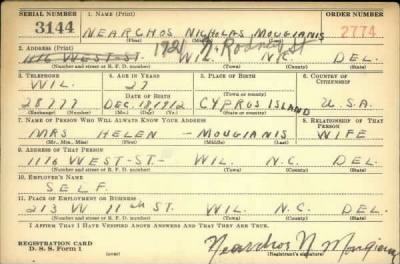 SERIAL NUMBER 1. NAME (Print) ORDER NUMBER
3144 NEARCHOS NICHOLAS MOUGIANIS 2774
(First) (Middle) (Last)
1721 N. Rodney St
2. ADDRESS (Print)
1176 WEST-ST- WIL. N.C. DEL.
(Number and street or R. F. D. number) (Town) (County) (State)
3. TELEPHONE 4. AGE IN YEARS 5. PLACE OF BIRTH 6. COUNTRY OF CITIZENSHIP
WIL. 27
28777 DEC. 18, 1912 CYPRUS ISLAND U.S.A.
(Exchange) (Number) DATE OF BIRTH (Mo.) (Day) (Yr.) (Town) (County) (State or country)
7. NAME OF PERSON WHO WILL ALWAYS KNOW YOUR ADDRESS 8. RELATIONSHIP OF THAT PERSON
MRS HELEN - MOUGIANIS WIFE
(Mr., Mrs., Miss) (First) (Middle) (Last)
9. ADDRESS OF THAT PERSON
1176 WEST-ST- WIL. N.C. DEL.
(Number and street or R. F. D. number) (Town) (County) (State)
10. EMPLOYER'S NAME
SELF
11. PLACE OF EMPLOYMENT OR BUSINESS
213 W 11th ST. WIL. N.C. DEL.
(Number and street or R. F. D. number) (Town) (County) (State)
I AFFIRM THAT I HAVE VERIFIED ABOVE ANSWERS AND THAT THEY ARE TRUE.
REGISTRATION CARD
D. S. S. Form 1 (over) Nearchos N Mougianis
(Registrant's signature)